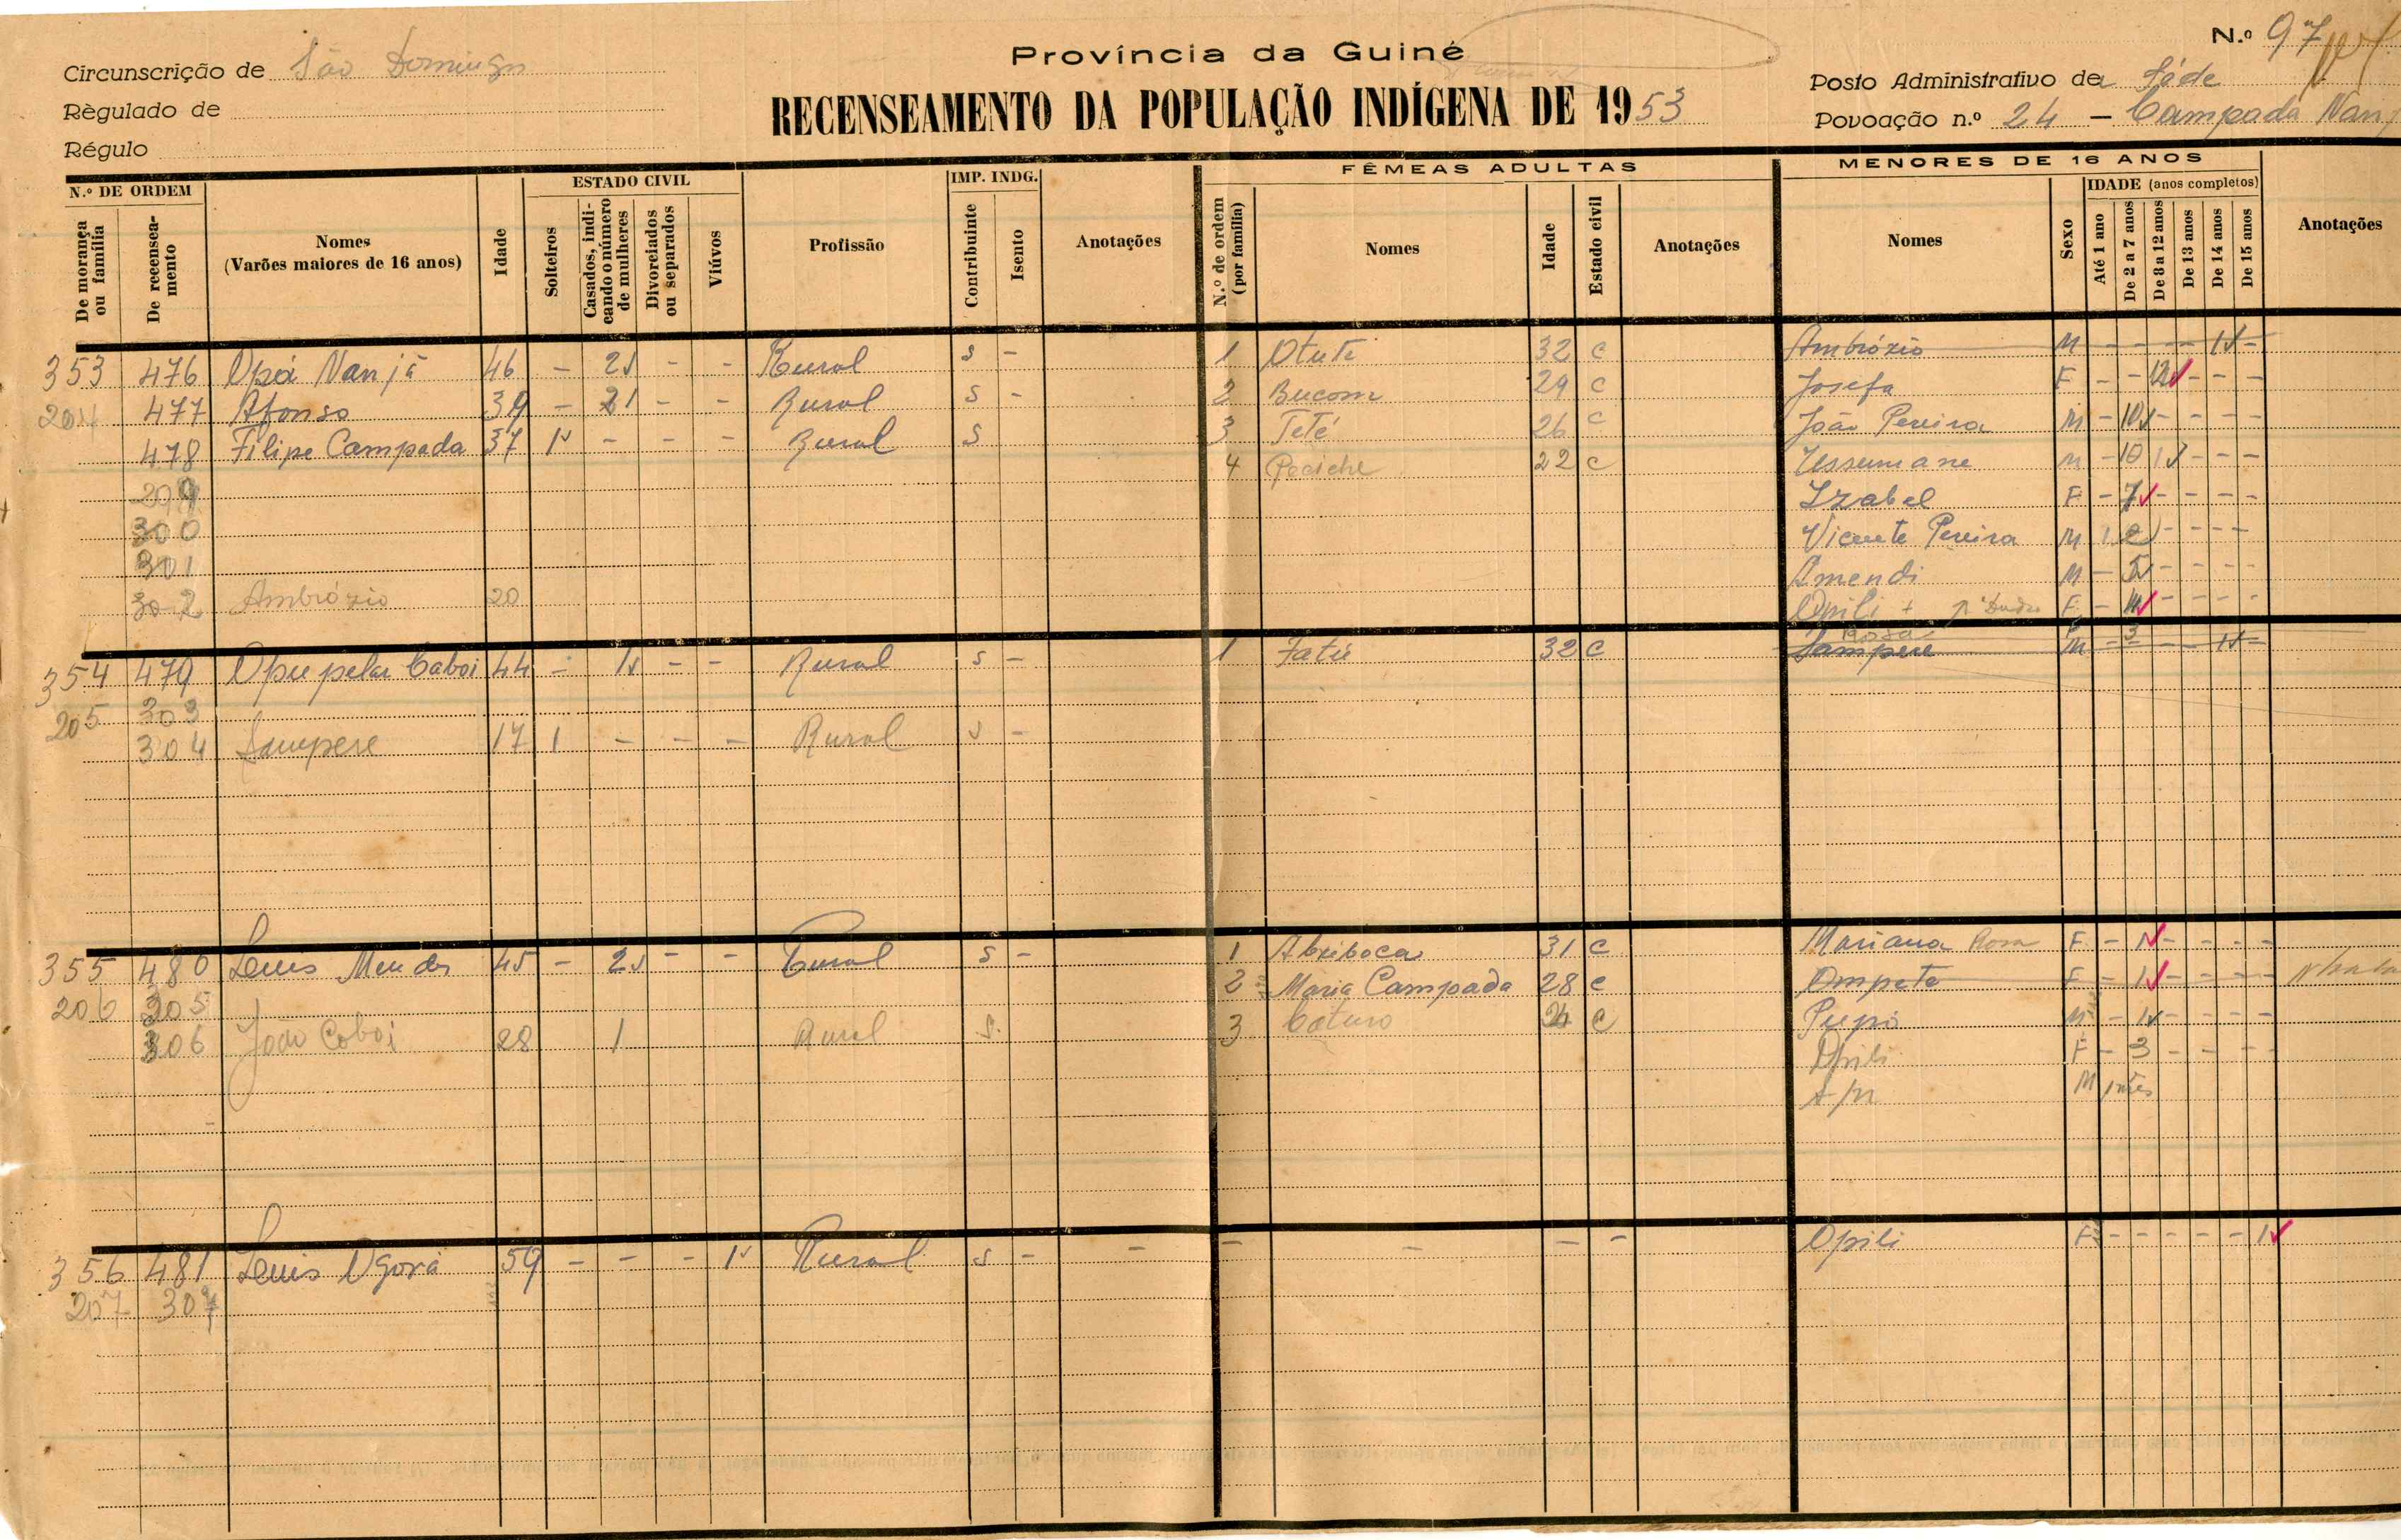 Província da Guiné
N.º 97
Circunscrição de São Domingos
Posto Administrativo da Séde
Règulado de
RECENSEAMENTO DA POPULAÇÃO INDÍGENA DE 1953
Povoação n.º 24 — Campada Nanj
Régulo
N.º DE ORDEM
De morança ou família
De recenseamento
Nomes
(Varões maiores de 16 anos)
Idade
ESTADO CIVIL
Solteiros
Casados, indicando o número de mulheres
Divorciados ou separados
Viúvos
Profissão
IMP. INDG.
Contribuinte
Isento
Anotações
FÊMEAS ADULTAS
N.º de ordem (por família)
Nomes
Idade
Estado civil
Anotações
MENORES DE 16 ANOS
Nomes
Sexo
IDADE (anos completos)
Até 1 ano
De 2 a 7 anos
De 8 a 12 anos
De 13 anos
De 14 anos
De 15 anos
Anotações
353 476 Opá Nanjá 46 - 2 - - Rural s - 1 Otuti 32 c Ambrózio M - - - - 1 -
204 477 Afonso 39 - 2 - - Rural s - 2 Bucom 29 c Josefa F - - 12 - - -
478 Filipe Campada 37 1 - - - Rural s 3 Teté 26 c João Pereira M - 10 - - - -
4 Peciche 22 c Ussumane M - 10 - - -
299 Izabel F - 7 - - - -
300 Vicente Pereira M - - - -
301 Amendi M - 5 - - - -
302 Ambrózio 20 Opili + F - - - - -
Rosa F 3
354 479 44 - 1 - - Rural s - 1 Fatú 32 c Sampere M - - - - 1 -
205 303
304 Sampere 17 1 - - - Rural s -
355 480 Luis Mendes 45 - 2 - - Rural s - 1 Abriboca 31 c Mariana Rosa F - 1 - - - -
206 305 2 Maria Campada 28 c Ompeta F - 1 - - - -
306 João Caboi 28 1 Rural s 3 Caturo 24 c Pupo M - 1 - - - -
Opili F - 3 - - - -
s/n M mês
356 481 Luis Ogorá 59 - - - 1 Rural s - - - - - - Opili F - - - - - 1
207 307